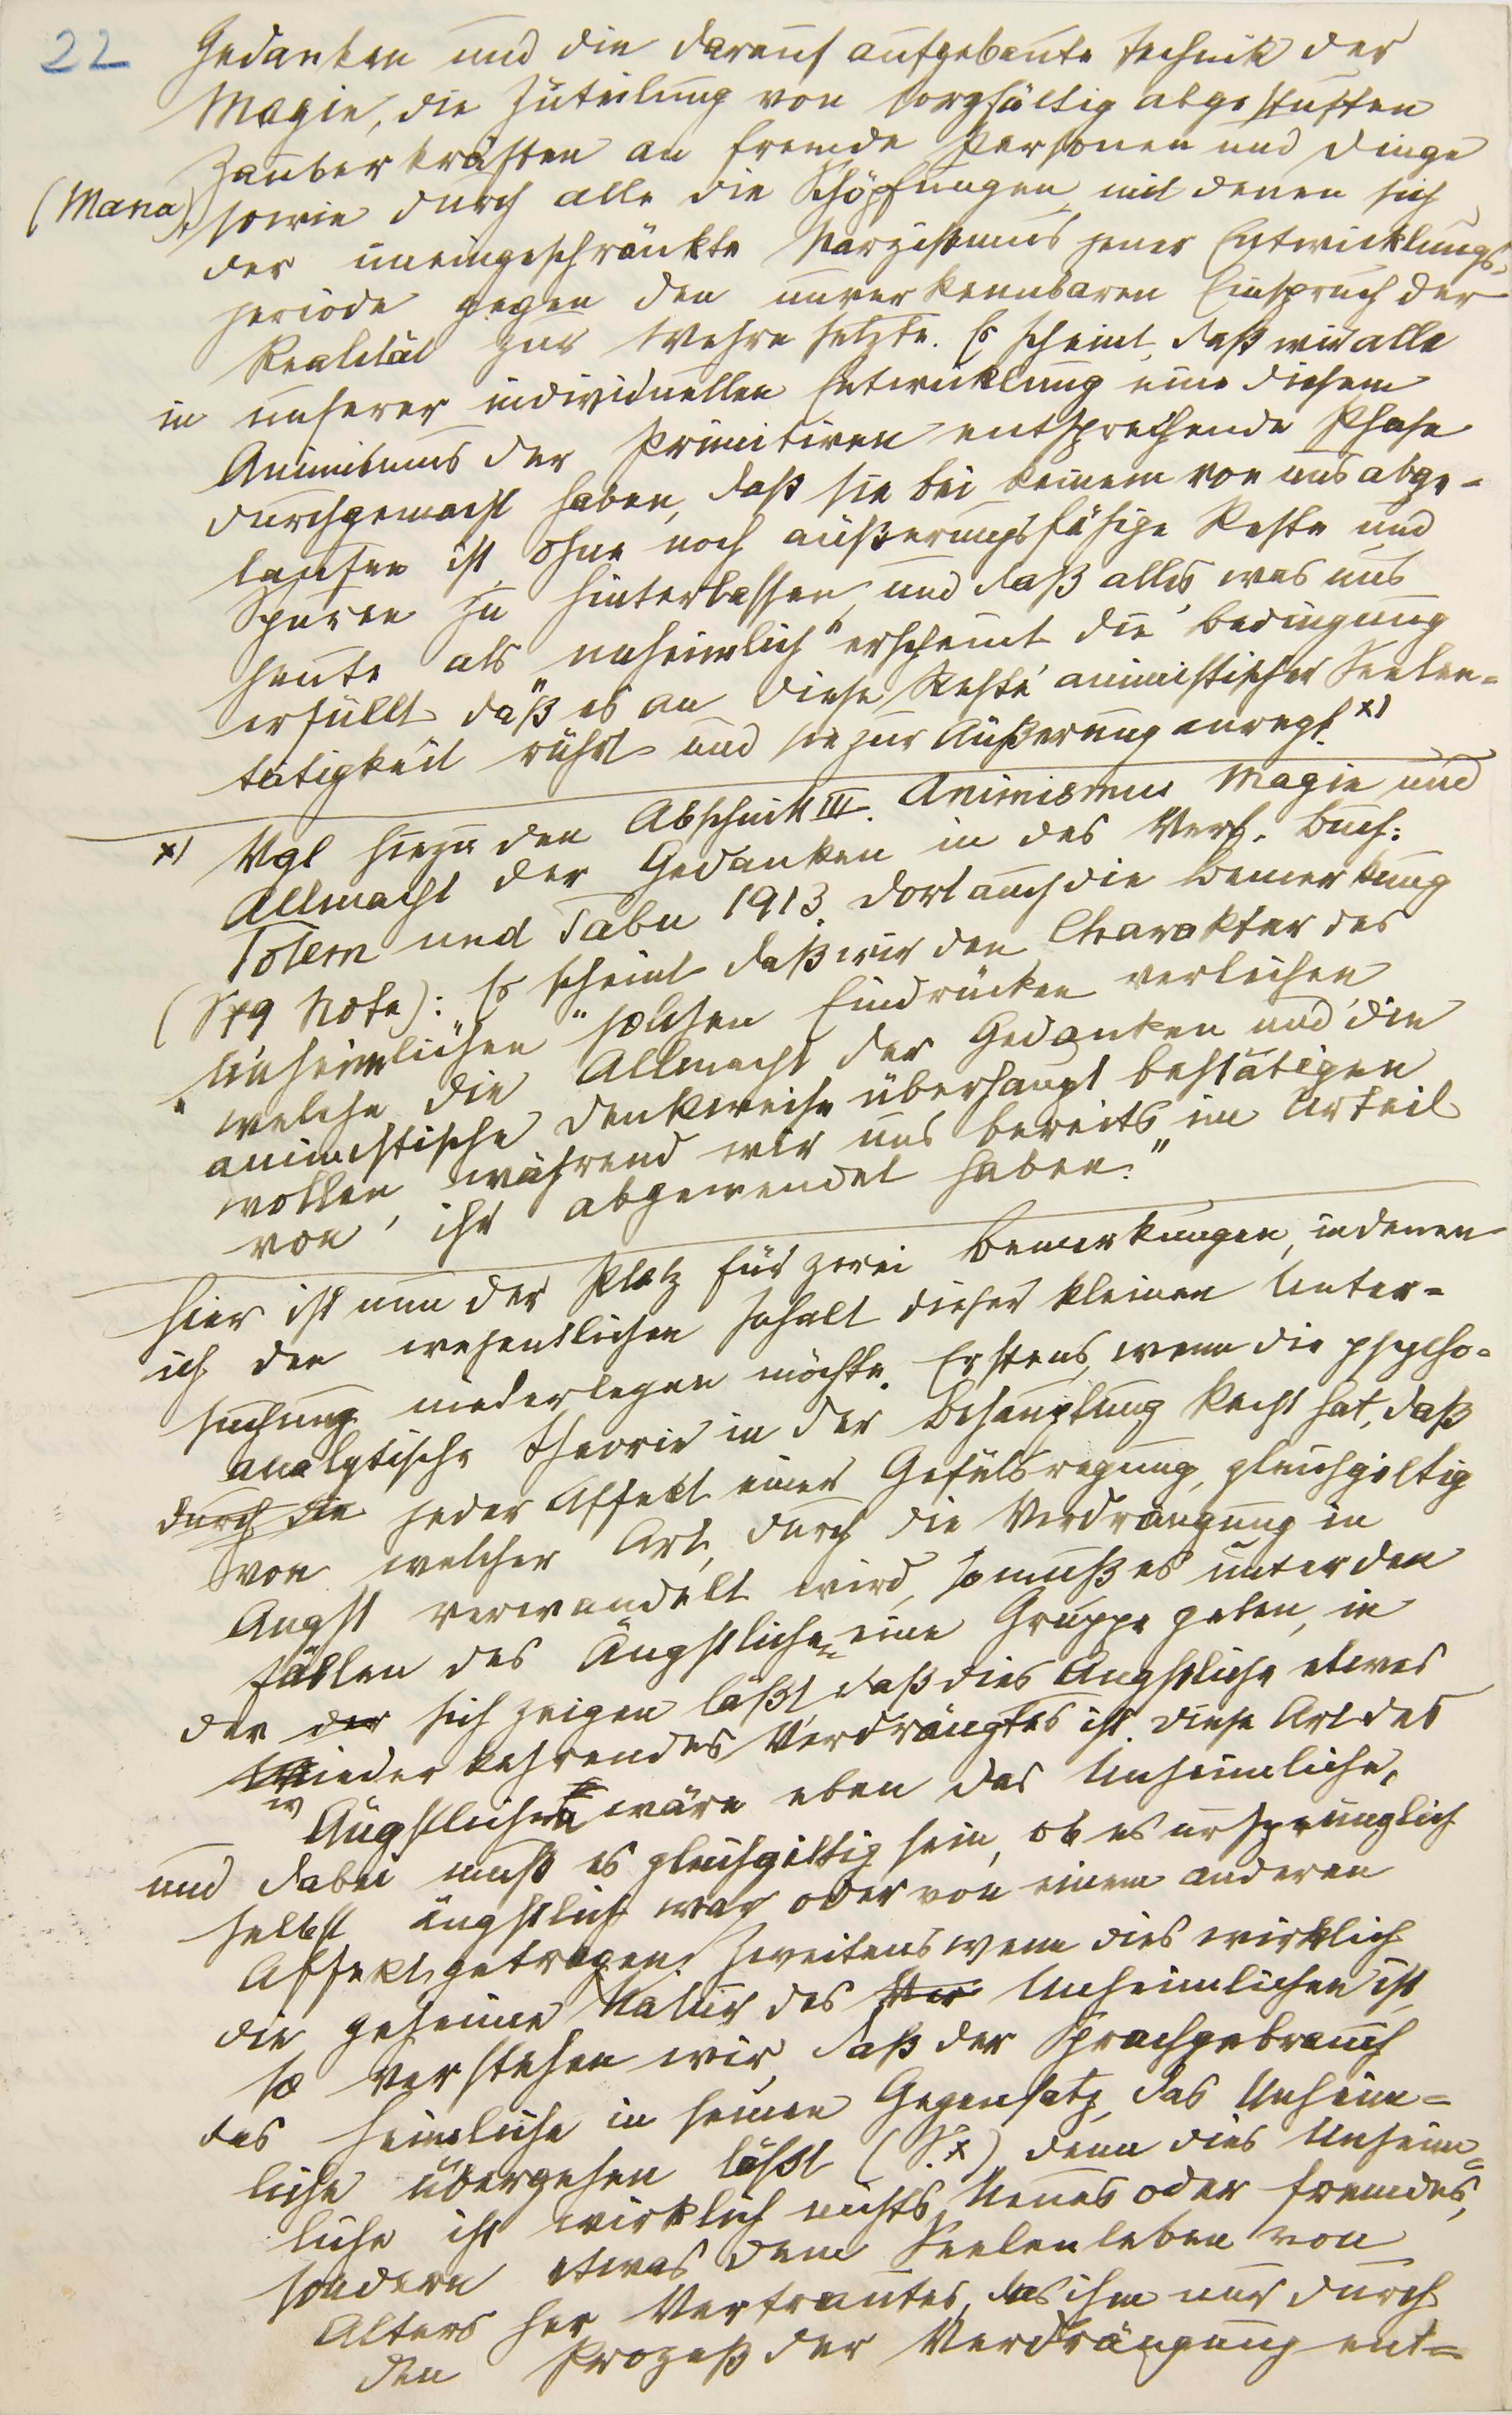 22
Gedanken und die darauf aufgebaute Technik der
Magie, die Zuteilung von sorgfältig abgestuften
Zauberkräften an fremde Personen und Dinge
(Mana)
sowie durch alle die Schöpfungen, mit denen sich
der uneingeschränkte Narzißmus jener Entwicklungs-
periode gegen den unverkennbaren Einspruch der
Realität zur Wehre setzte. Es scheint, daß wir alle
in unserer individuellen Entwicklung eine diesem
Animismus der Primitiven entsprechende Phase
durchgemacht haben, daß sie bei keinem von uns abge-
laufen ist, ohne noch äußerungsfähige Reste und
Spuren zu hinterlassen, und daß alles was uns
heute als „unheimlich“ erscheint die Bedingung
erfüllt daß es an diese Reste animistischer Seelen-
tätigkeit rührt und sie zur Äußerung anregt. x)
x) Vgl hiezu den Abschnitt III. Animismus Magie und
Allmacht der Gedanken in des Verf. Buch:
Totem und Tabu 1913. Dort auch die Bemerkung
(S 79 Note): Es scheint daß wir den Charakter des
„Unheimlichen“ solchen Eindrücken verleihen
welche die Allmacht der Gedanken und die
animistische Denkweise überhaupt bestätigen
wollen, während wir uns bereits im Urteil
von ihr abgewendet haben.“
Hier ist nun der Platz für zwei Bemerkungen, in denen
ich den wesentlichen Inhalt dieser kleinen Unter-
suchung niederlegen möchte. Erstens, wenn die psycho-
analytische Theorie in der Behauptung Recht hat, daß
durch die jeder Affekt einer Gefülsregung, gleichgiltig
von welcher Art, durch die Verdrängung in
Angst verwandelt wird, so muß es unter den
Fällen des Ängstlichen eine Gruppe geben, in
der der sich zeigen läßt, daß dies Ängstliche etwas
Wiederkehrendes Verdrängtes ist. Diese Art des
w
Ängstlichen wäre eben das Unheimliche,
und dabei muß es gleichgiltig sein, ob es ursprünglich
selbst ängstlich war oder von einem anderen
Affekt getragen. Zweitens wenn dies wirklich
die geheime Natur des Ver Unheimlichen ist,
so verstehen wir, daß der Sprachgebrauch
das Heimliche in seinen Gegensatz, das Unheim-
liche übergehen läßt (S. x), denn dies Unheim-
liche ist wirklich nichts Neues oder Fremdes,
sondern etwas dem Seelenleben von
Alters her Vertrautes, das ihm nur durch
den Prozeß der Verdrängung ent-